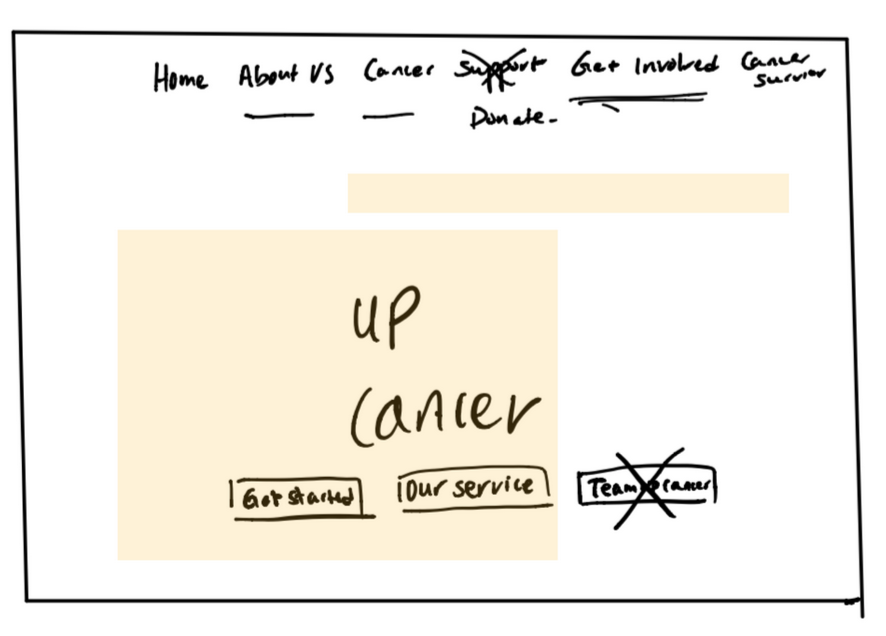 Home About Us Cancer Support Get Involved Cancer
Survior
Donate-
UP
Cancer
Get started Our service Team cancer